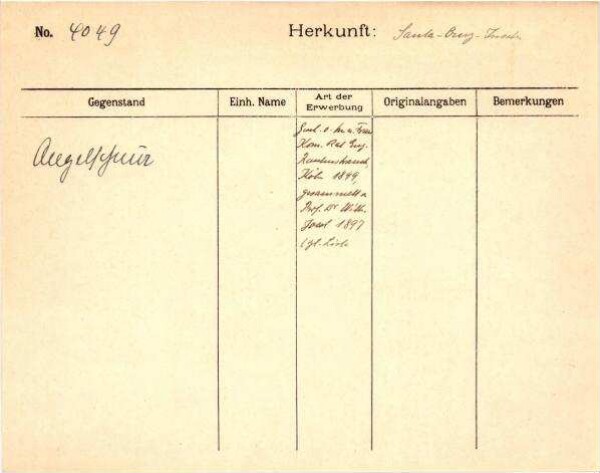 No. 4049
Herkunft: Santa-Cruz-Inseln
Gegenstand
Einh. Name
Art der Erwerbung
Originalangaben
Bemerkungen
Angelschnur
Kom. Rat Eug.
Rautenstrauch,
Köln 1899,
gesammelt v.
Prof. Dr Wilh.
Joest 1897